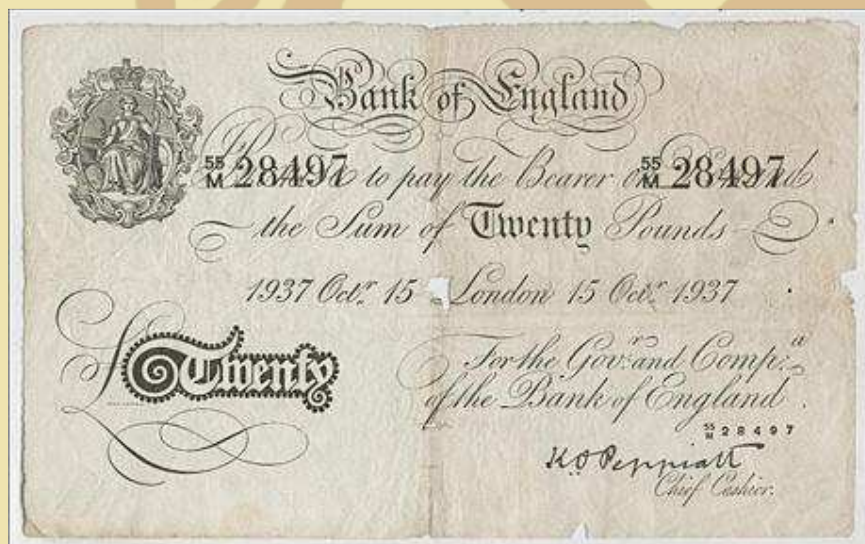 Bank of England
55
M 28497 to pay the Bearer on 55
M 28497
the Sum of Twenty Pounds
1937 Octr 15 London 15 Octr 1937
£Twenty
For the Govr and Compa
of the Bank of England.
55
M 28497
K.O Peppiatt
Chief Cashier.